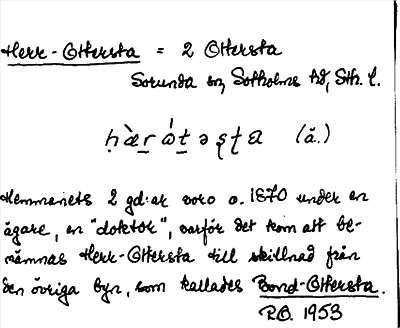 Herr-Ottersta = 2 Ottersta
Sorunda sn, Sotholms hd, Sth. l.
hæ̀ṟ ώṯəʂʈa (ä..)
Hemmanets 2 gd:ar voro o. 1870 under en
ägare, en "doktor", varför det kom att be-
nämnas Herr-Ottersta till skillnad från
den övriga byn, som kallades Bond-Ottersta.
R.O. 1953